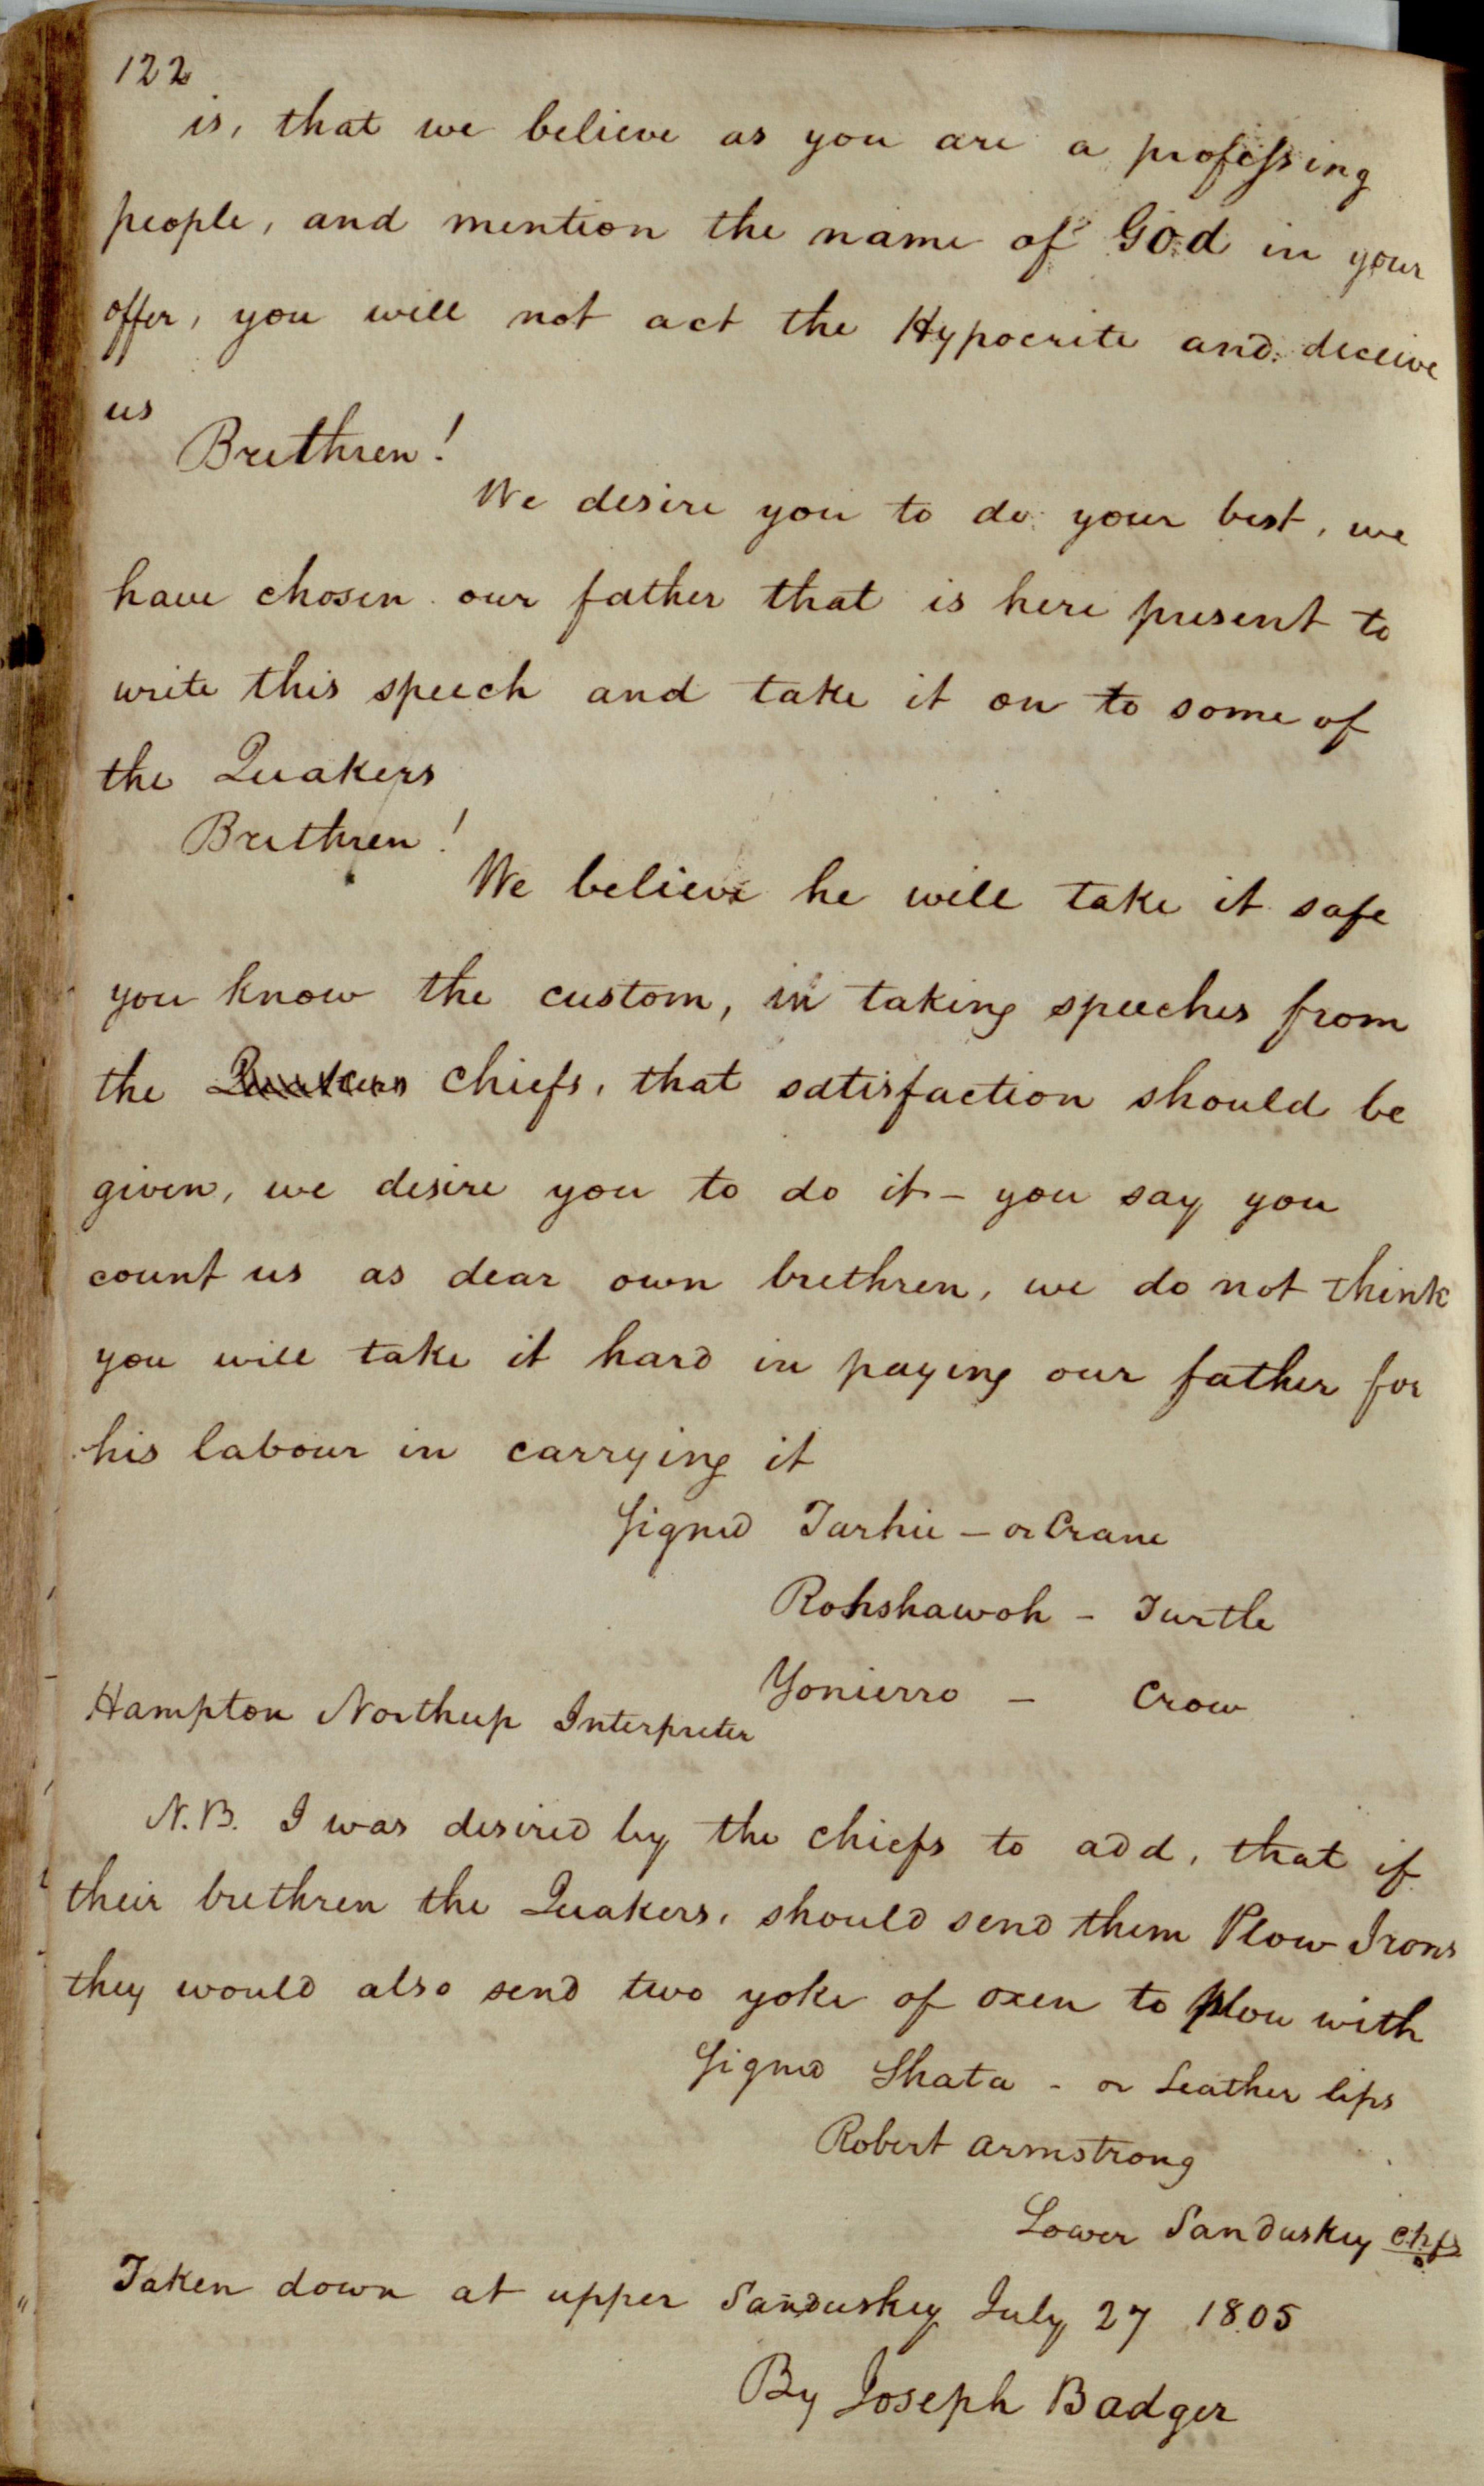 122
is, that we believe as you are a professing
people, and mention the name of God in your
offer, you will not act the Hypocrite and deceive
us
Brethren!
We desire you to do your best, we
have chosen our father that is here present to
write this speech and take it on to some of
the Quakers
Brethren!
We believe he will take it safe
you know the custom, in taking speeches from
the Quakers chiefs, that satisfaction should be
given, we desire you to do it – you say you
count us as dear own brethren, we do not think
you will take it hard in paying our father for
his labour in carrying it
Signed Tarhie – or Crane
Rohshawoh – Turtle
Yonierro – Crow
Hampton Northup Interpreter
N.B. I was desired by the chiefs to add, that if
their brethren the Quakers, should send them Plow Irons
they would also send two yoke of oxen to plow with
Signed Shata - or Leather lips
Robert Armstrong
Lower Sandusky chfs
Taken down at upper Sandusky July 27 1805
By Joseph Badger